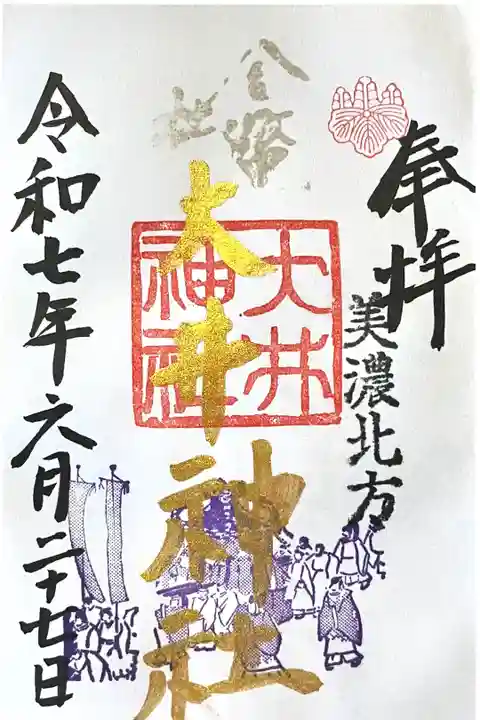 奉拝
美濃北方
金幣社
大井神社
大井神社
令和七年六月二十七日